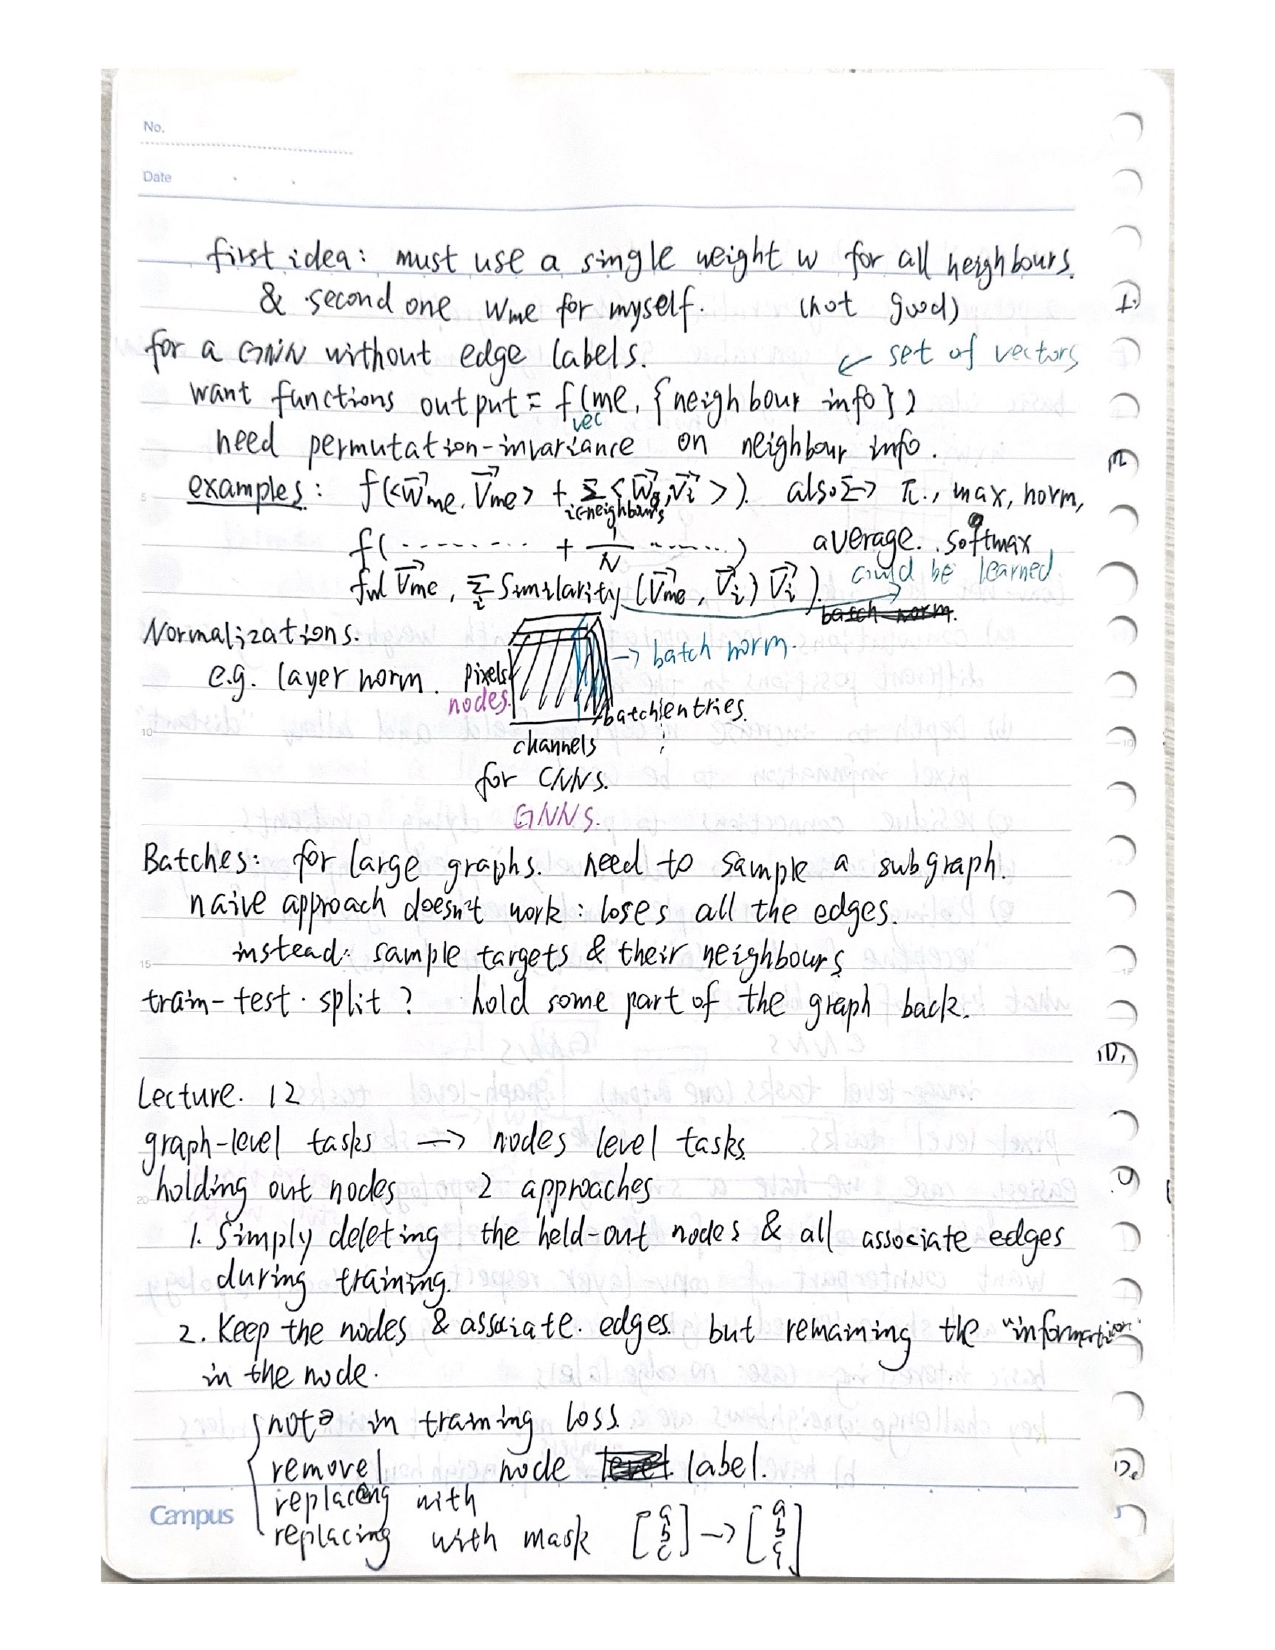 No.
Date
first idea: must use a single weight w for all neighbours.
& second one Wme for myself. (not good)
for a GNN without edge labels.
← set of vectors
want functions output = f(me, {neighbour info})
vec
need permutation-invariance on neighbour info.
examples: f(<W⃗me, V⃗me> + Σ <W⃗g, V⃗i>). also Σ → π., max, norm,
i∈neighbours
f( ........ + 1/N ......) average. softmax
could be learned
ful V⃗me, Σ Similarity (V⃗me, V⃗i) V⃗i)
i
batch norm.
Normalizations.
→ batch norm.
e.g. layer norm. pixels
nodes.
batch entries.
channels
for CNNs.
GNNs.
Batches: for large graphs. need to sample a subgraph.
naive approach doesn't work: loses all the edges.
instead: sample targets & their neighbours
train-test split? hold some part of the graph back.
Lecture. 12
graph-level tasks → nodes level tasks
holding out nodes 2 approaches
1. Simply deleting the held-out nodes & all associate edges
during training.
2. Keep the nodes & associate edges but remaining the "information"
in the node.
not in training loss
remove node label.
replacing with
replacing with mask [a b c] → [a b c 1]
Campus